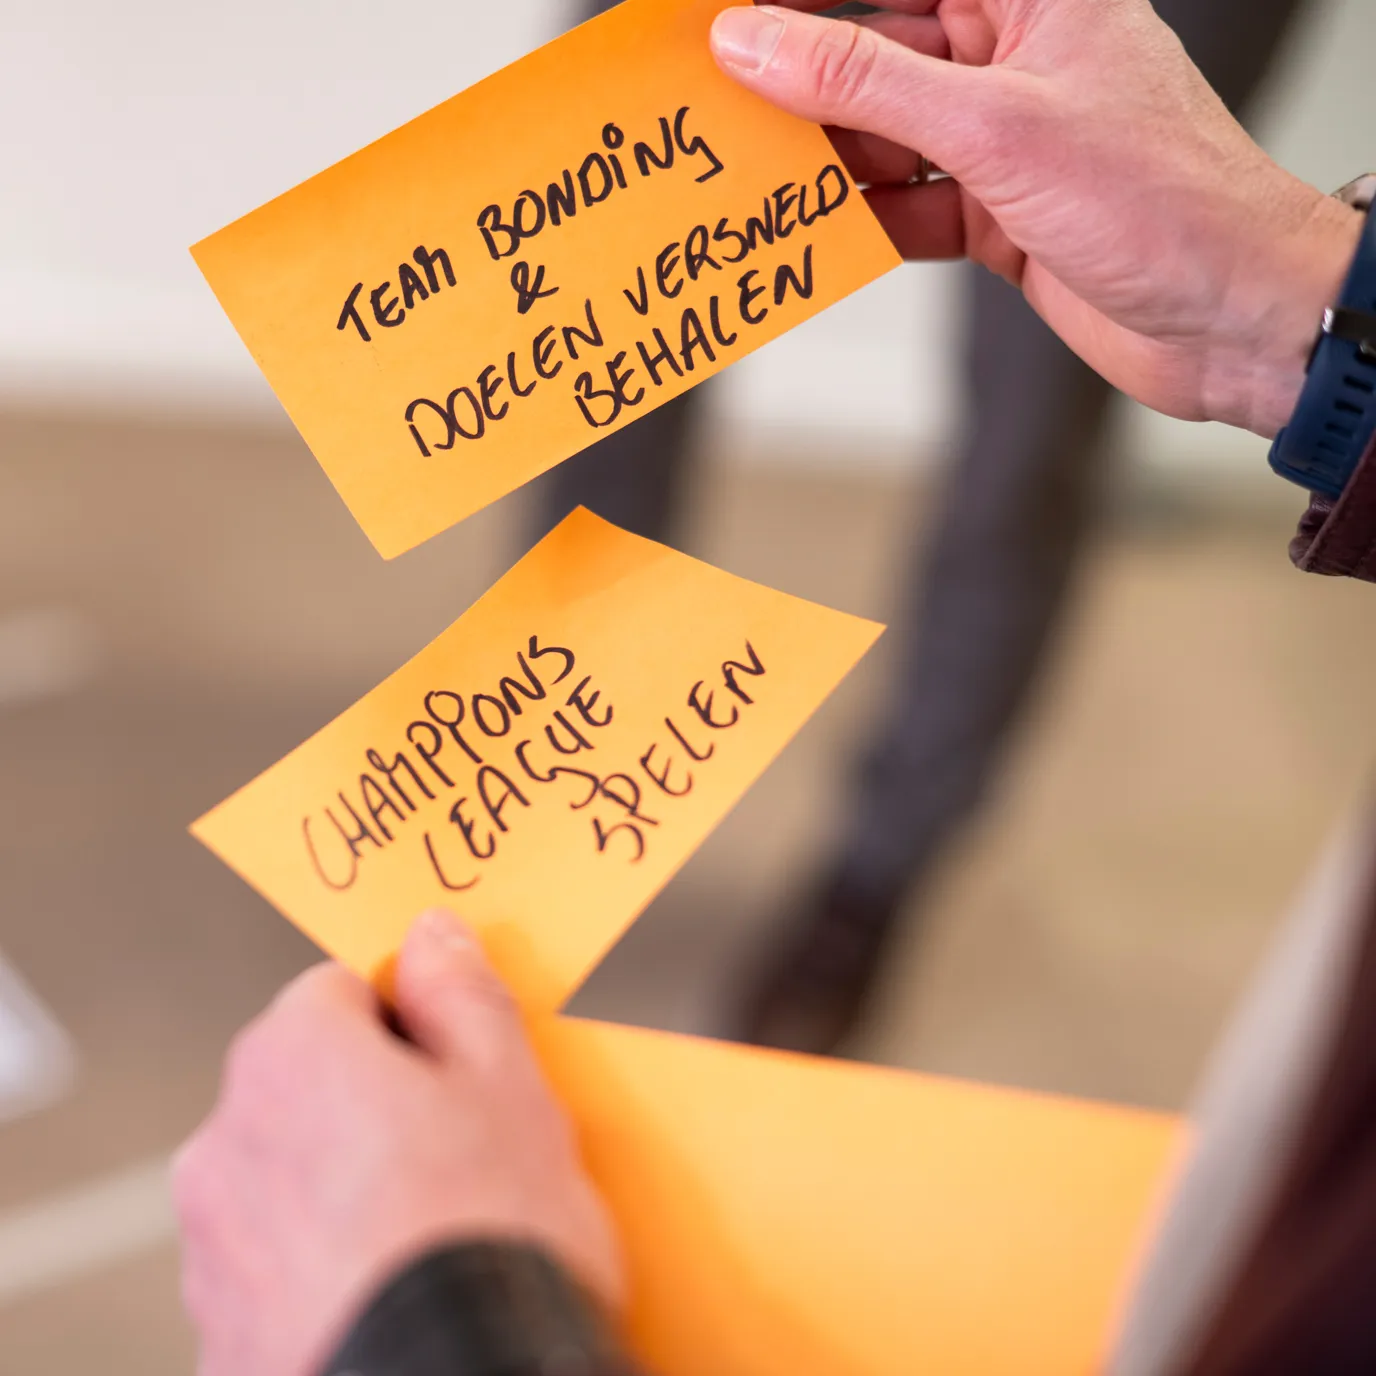 TEAM BONDING
&
DOELEN VERSNELD
BEHALEN
CHAMPIONS
LEAGUE
SPELEN